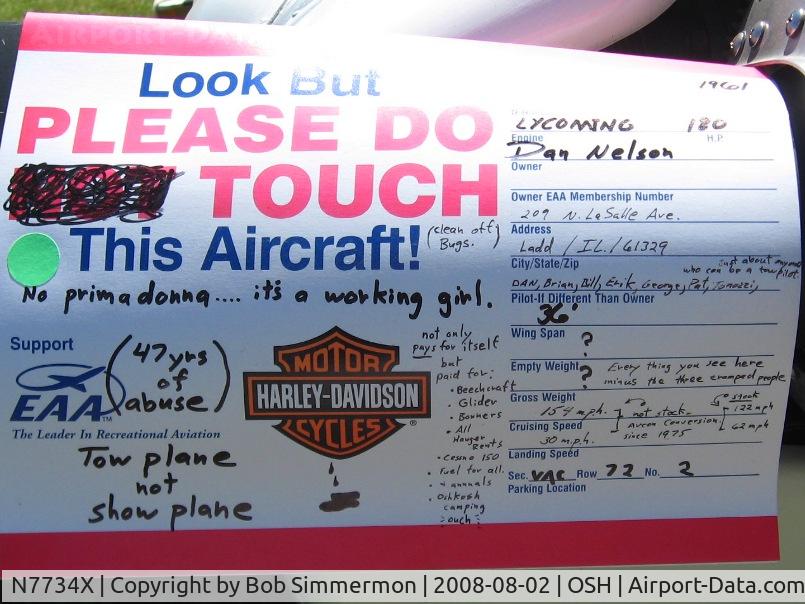 AIRPORT-DATA
Look But
PLEASE DO
TOUCH
This Aircraft!
(clean off
Bugs.)
No primadonna.... it's a working girl.
Support
EAA™
The Leader In Recreational Aviation
(47 yrs
of
abuse)
Tow plane
not
show plane
MOTOR
HARLEY-DAVIDSON
CYCLES
®
not only
pays for itself
but
paid for:
• Beechcraft
• Glider
• Banners
• All
Hanger
Rents
• Cessna 150
• Fuel for all.
• Oshkosh
camping
ouch!
1961
LYCOMING 180
Engine H.P.
Dan Nelson
Owner
Owner EAA Membership Number
209 N. LaSalle Ave.
Address
Ladd / IL. / 61329
City/State/Zip
just about anyone
who can be a tow pilot
DAN, Brian, Bill, Erik, George, Pat,
Pilot-If Different Than Owner
36'
Wing Span
?
Empty Weight
? Every thing you see here
minus the three cramped people
Gross Weight
154 mph. not stock. stock
122 mph
Cruising Speed
Avcon Conversion
since 1975
62 mph
30 m.p.h.
Landing Speed
Sec. VAC Row 72 No. 2
Parking Location
N7734X | Copyright by Bob Simmermon | 2008-08-02 | OSH | Airport-Data.com